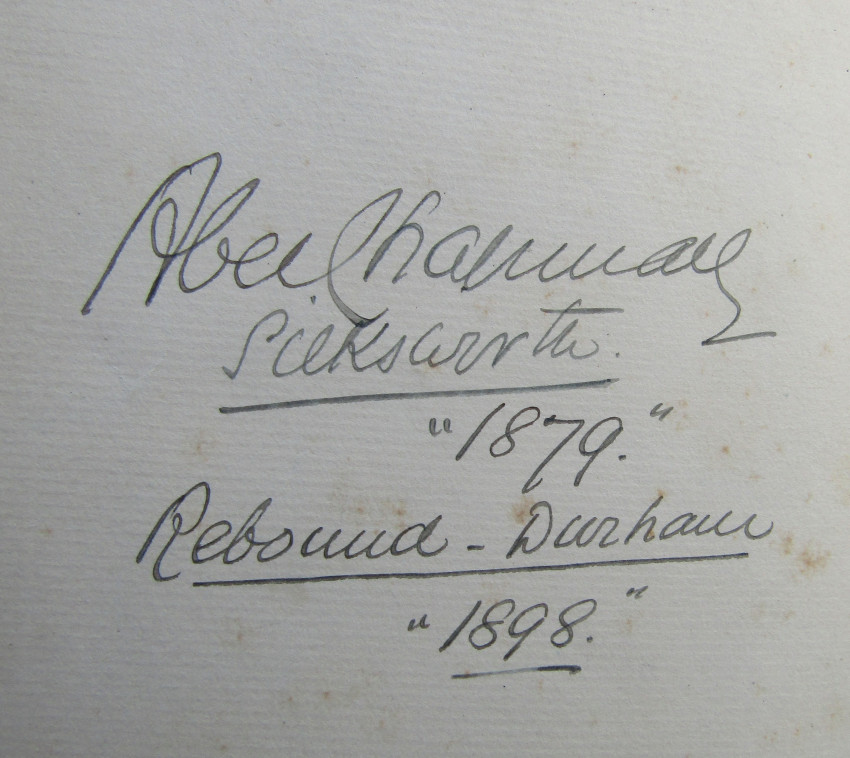 Abel Chapman
Silksworth.
"1879."
Rebound - Durham
"1898."